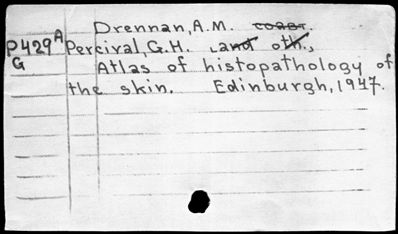 Drennan, A.M. coавт.
P429 A Percival, G.H. , and oth.,
G Atlas of histopathology of
the skin. Edinburgh, 1947.